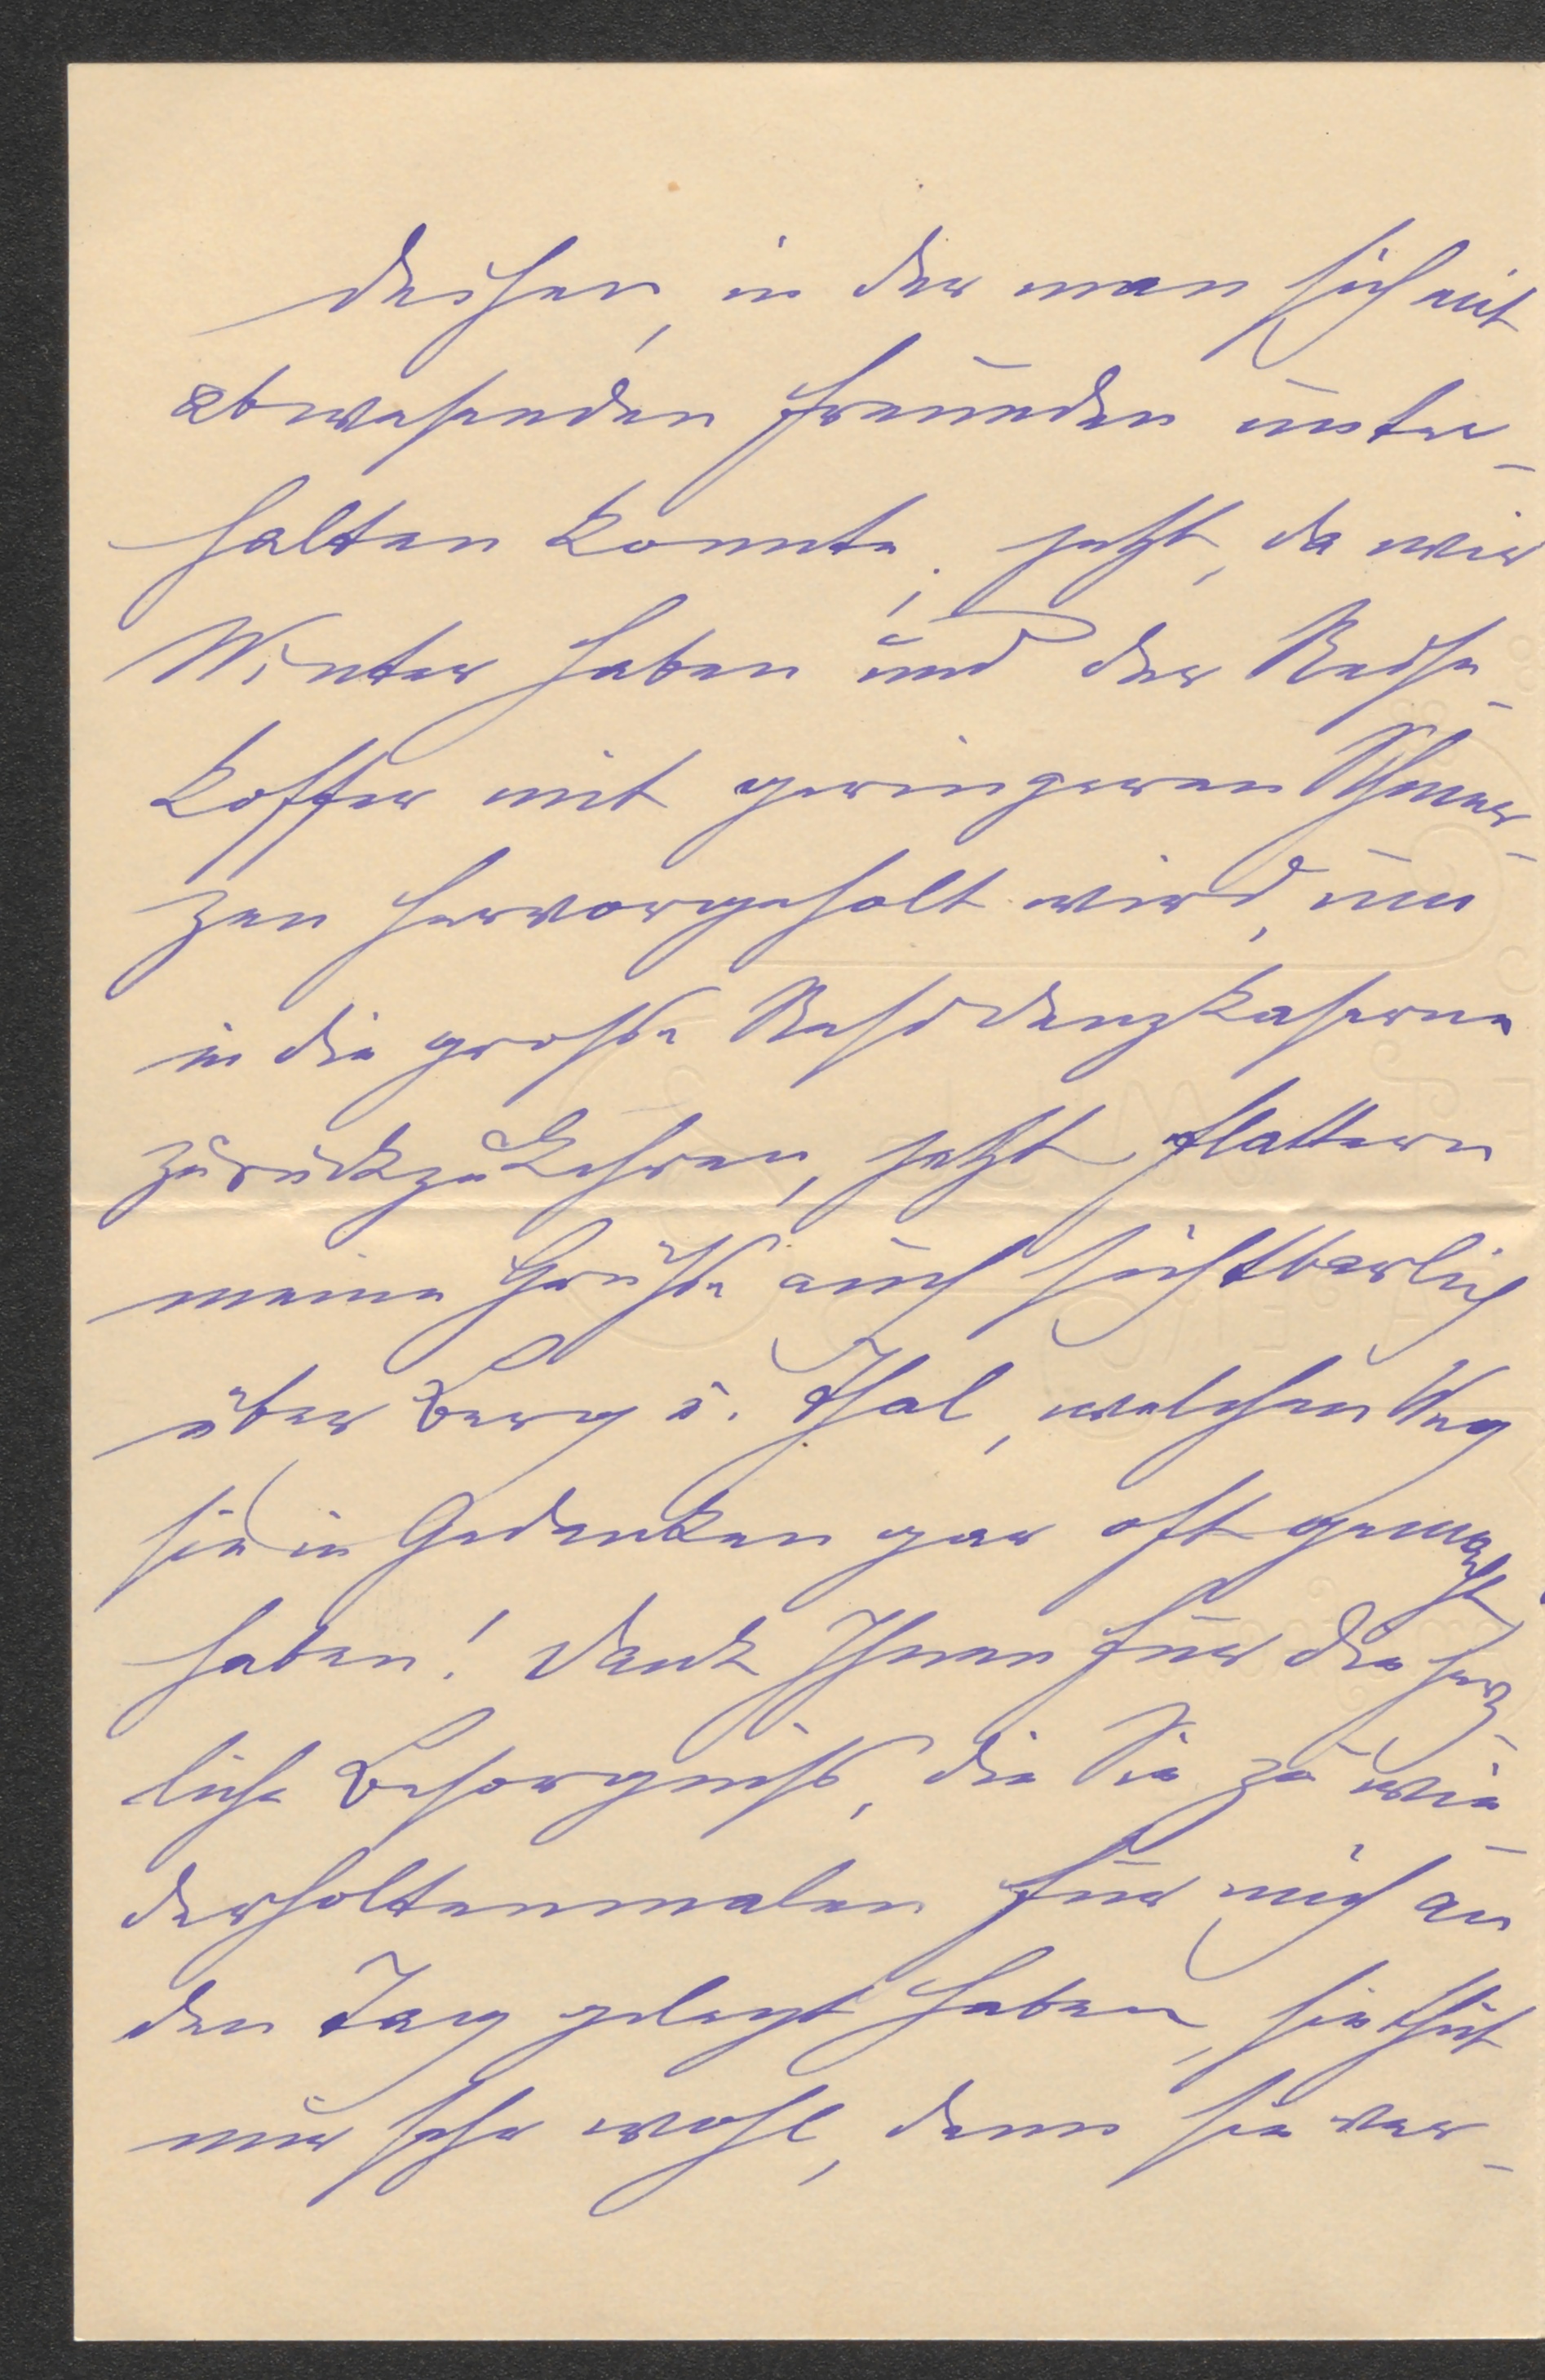 deihen, in der man sich mit
abwesenden Freunden unter-
halten konnte; jetzt, da wir
Winter haben und der Reise-
koffer mit geringeren Schmer-
zen hervorgeholt wird, um
in die große Residenzkaserne
zurückzukehren, jetzt flattern
meine Grüße auch sichtbarlich
über Berg u. Thal, welchen Weg
sie in Gedanken gar oft gemacht
haben! Dank Ihnen für die herz-
liche Besorgniß, die Sie zu wie-
derholtenmalen für mich an
den Tag gelegt haben, sie thut
mir sehr wohl, denn sie ver-